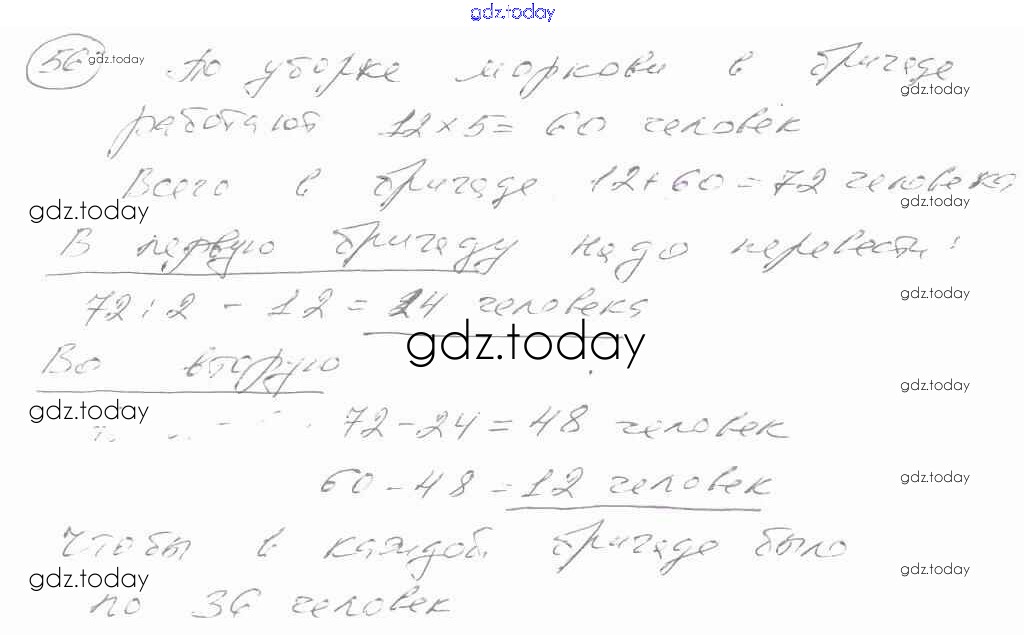 gdz.today
56 gdz.today По уборке моркови в бригаде
gdz.today
работают 12×5= 60 человек
Всего в бригаде 12+60=72 человека
gdz.today gdz.today
В первую бригаду надо перевести:
72:2 - 12 = 24 человека
gdz.today
gdz.today
Во вторую
gdz.today
gdz.today
72-24=48 человек
60-48=12 человек
gdz.today
Чтобы в каждой бригаде было
gdz.today gdz.today
по 36 человек